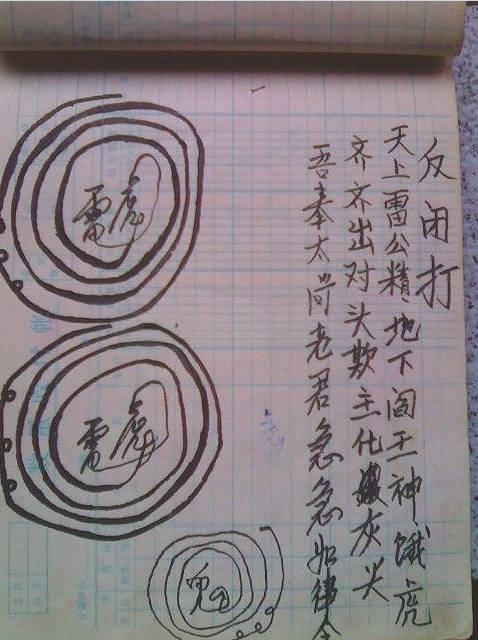 反闭打
天上雷公精地下阎王神饿虎
齐齐出对头欺主化灰
吾奉太尚老君急急如律令
雷虎
雷虎
鬼